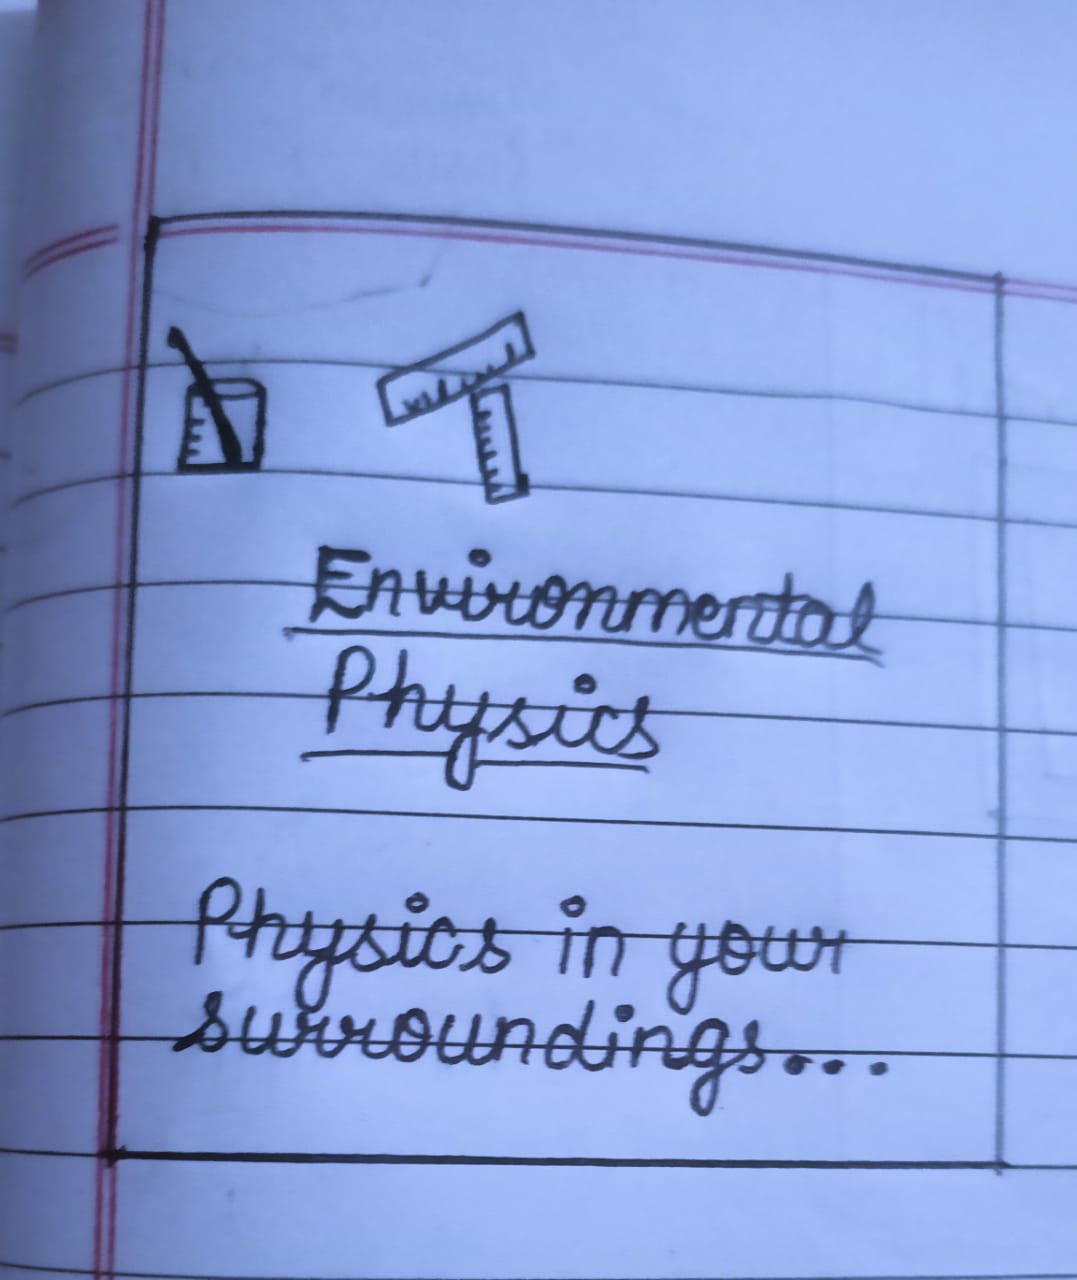 Environmental
Physics
Physics in your
surroundings...